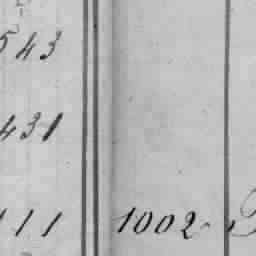 543
431
111 1002